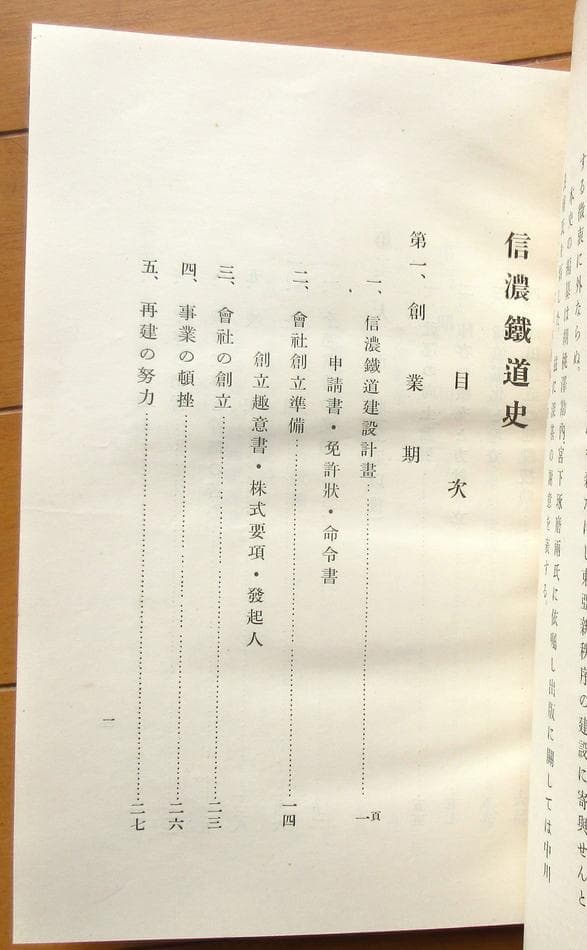 する微衷に外ならぬ。
東亞新秩序の建設に寄與せんと
本史の編纂は胡桃澤勘內宮下琢磨兩氏に依囑し出版に關しては中川
茲に深甚の謝意を表する。
信濃鐵道史
目次
第一、創業期
一、信濃鐵道建設計畫…………一頁
申請書・免許狀・命令書
二、會社創立準備…………一四
創立趣意書・株式要項・發起人
三、會社の創立…………二三
四、事業の頓挫…………二六
五、再建の努力…………二七
一